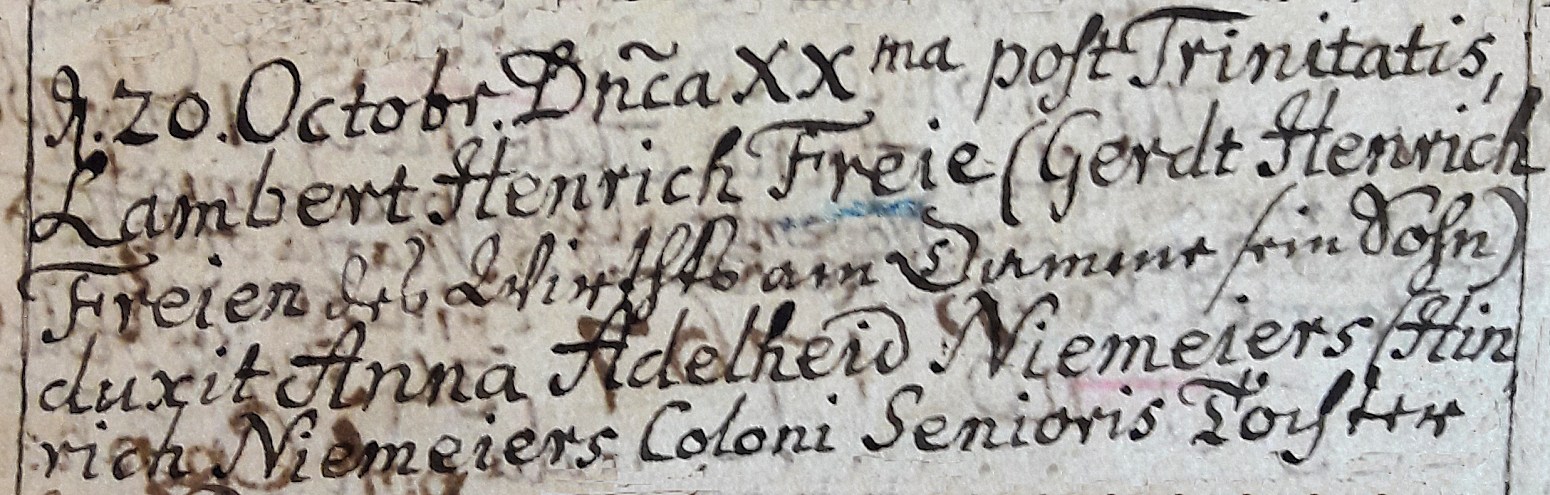 d. 20. Octobr. Dnc̃a XXma post Trinitatis,
Lambert Henrich Freie (Gerdt Henrich
Freien des Wirths am Damme sein Sohn)
duxit Anna Adelheid Niemeiers (Hin
rich Niemeiers Coloni Senioris Töchter